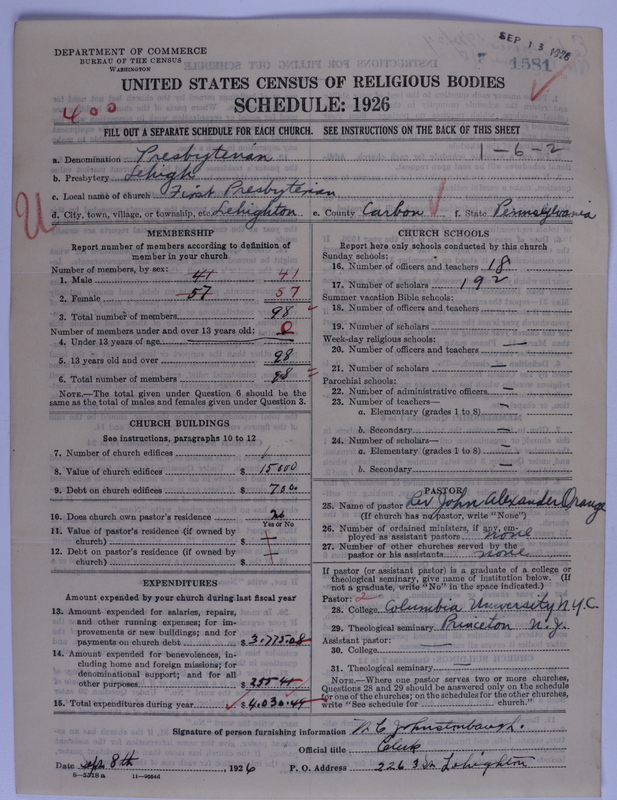 SEP 13 1926
1581
DEPARTMENT OF COMMERCE
BUREAU OF THE CENSUS
WASHINGTON
UNITED STATES CENSUS OF RELIGIOUS BODIES
SCHEDULE: 1926
400
FILL OUT A SEPARATE SCHEDULE FOR EACH CHURCH. SEE INSTRUCTIONS ON THE BACK OF THIS SHEET
1-6-2
a. Denomination Presbyterian
b. Presbytery Lehigh
c. Local name of church First Presbyterian
U
d. City, town, village, or township, etc. Lehighton e. County Carbon f. State Pennsylvania
MEMBERSHIP
Report number of members according to definition of
member in your church
Number of members, by sex:
1. Male 41 41
2. Female 57 57
3. Total number of members 98
Number of members under and over 13 years old:
4. Under 13 years of age 0
5. 13 years old and over 98
6. Total number of members 98
NOTE.—The total given under Question 6 should be
the same as the total of males and females given under Question 3.
CHURCH BUILDINGS
See instructions, paragraphs 10 to 12
7. Number of church edifices 1
8. Value of church edifices $ 15000
9. Debt on church edifices $ 700
10. Does church own pastor's residence no
Yes or No
11. Value of pastor's residence (if owned by
church) $
12. Debt on pastor's residence (if owned by
church) $
EXPENDITURES
Amount expended by your church during last fiscal year
13. Amount expended for salaries, repairs,
and other running expenses; for im-
provements or new buildings; and for
payments on church debt $ 3.775.08
14. Amount expended for benevolences, in-
cluding home and foreign missions; for
denominational support; and for all
other purposes $ 355 41
15. Total expenditures during year $ 4.030.49
CHURCH SCHOOLS
Report here only schools conducted by this church
Sunday schools:
16. Number of officers and teachers 18
17. Number of scholars 192
Summer vacation Bible schools:
18. Number of officers and teachers
19. Number of scholars
Week-day religious schools:
20. Number of officers and teachers
21. Number of scholars —
Parochial schools:
22. Number of administrative officers —
23. Number of teachers—
a. Elementary (grades 1 to 8) —
b. Secondary —
24. Number of scholars—
a. Elementary (grades 1 to 8) —
b. Secondary —
PASTOR
25. Name of pastor Rev John Alexander Orange
(If church has no pastor, write "None")
26. Number of ordained ministers, if any, em-
ployed as assistant pastors none
27. Number of other churches served by the
pastor or his assistants none
If pastor (or assistant pastor) is a graduate of a college or
theological seminary, give name of institution below. (If
not a graduate, write "No" in the space indicated.)
Pastor: 2
28. College Columbia University N.Y.C.
29. Theological seminary Princeton N.J.
Assistant pastor:
30. College —
31. Theological seminary —
NOTE.—Where one pastor serves two or more churches,
Questions 28 and 29 should be answered only on the schedule
for one of the churches; on the schedules for the other churches,
write "See schedule for church."
Signature of person furnishing information Johnstonbaugh.
Official title Clerk
Date Sep. 8th, 1926 P. O. Address 226 3 St Lehighton
8—5318 a 11—9054d